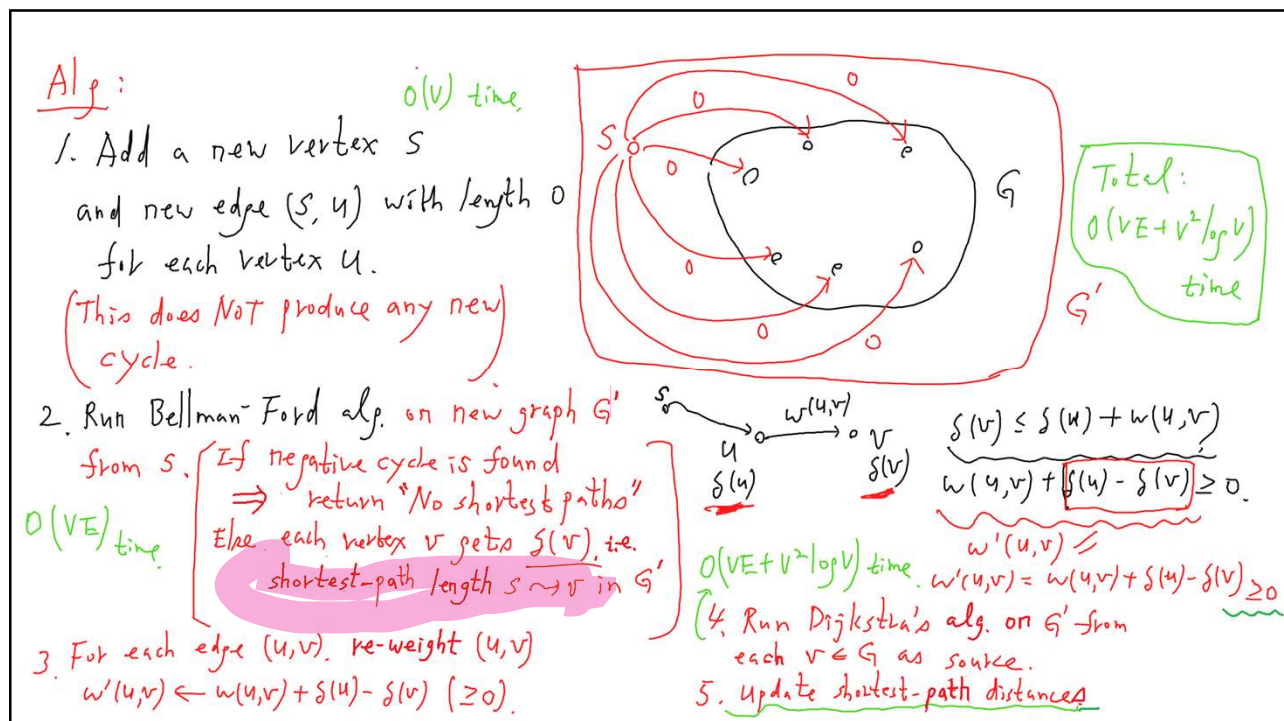 Alg:
O(V) time.
1. Add a new vertex S
and new edge (S, u) with length 0
for each vertex u.
(This does NOT produce any new
cycle.)
S
0
0
0
0
0
0
G
G'
Total:
O(VE + V² log V)
time
2. Run Bellman-Ford alg. on new graph G'
from s.
O(VE) time.
[If negative cycle is found
⇒ return "No shortest paths"
Else each vertex v gets δ(v), i.e.
shortest-path length s ⤳ v in G']
3. For each edge (u,v), re-weight (u,v)
w'(u,v) ← w(u,v) + δ(u) - δ(v) (≥0).
s
w(u,v)
u
v
δ(u)
δ(v)
δ(v) ≤ δ(u) + w(u,v)
w(u,v) + δ(u) - δ(v) ≥ 0.
w'(u,v)
w'(u,v) = w(u,v) + δ(u) - δ(v) ≥0
O(VE + V² log V) time.
4. Run Dijkstra's alg. on G' from
each v ∈ G as source.
5. Update shortest-path distances